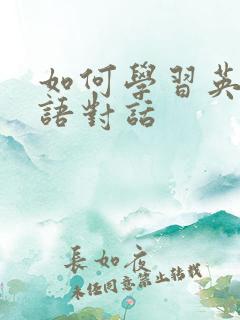 如何學習英
語對話
長如夜
未經同意禁止轉載